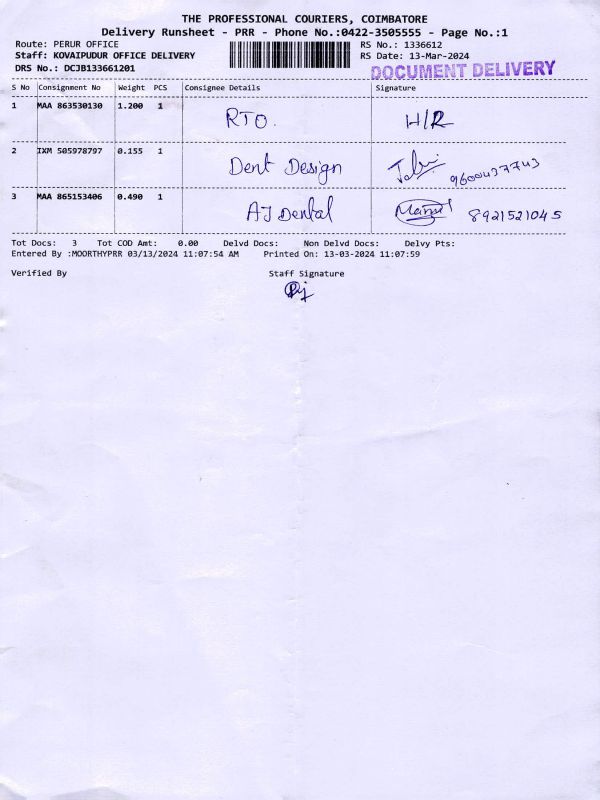 THE PROFESSIONAL COURIERS, COIMBATORE
Delivery Runsheet - PRR - Phone No.:0422-3505555 - Page No.:1
Route: PERUR OFFICE RS No.: 1336612
Staff: KOVAIPUDUR OFFICE DELIVERY RS Date: 13-Mar-2024
DRS No.: DCJB133661201 DOCUMENT DELIVERY
S No Consignment No Weight PCS Consignee Details Signature
1 MAA 863530130 1.200 1 RTO. H/R
2 IXM 505978797 0.155 1 Dent Design 9600437743
3 MAA 865153406 0.490 1 AJ Dental 8921521045
Tot Docs: 3 Tot COD Amt: 0.00 Delvd Docs: Non Delvd Docs: Delvy Pts:
Entered By :MOORTHYPRR 03/13/2024 11:07:54 AM Printed On: 13-03-2024 11:07:59
Verified By Staff Signature